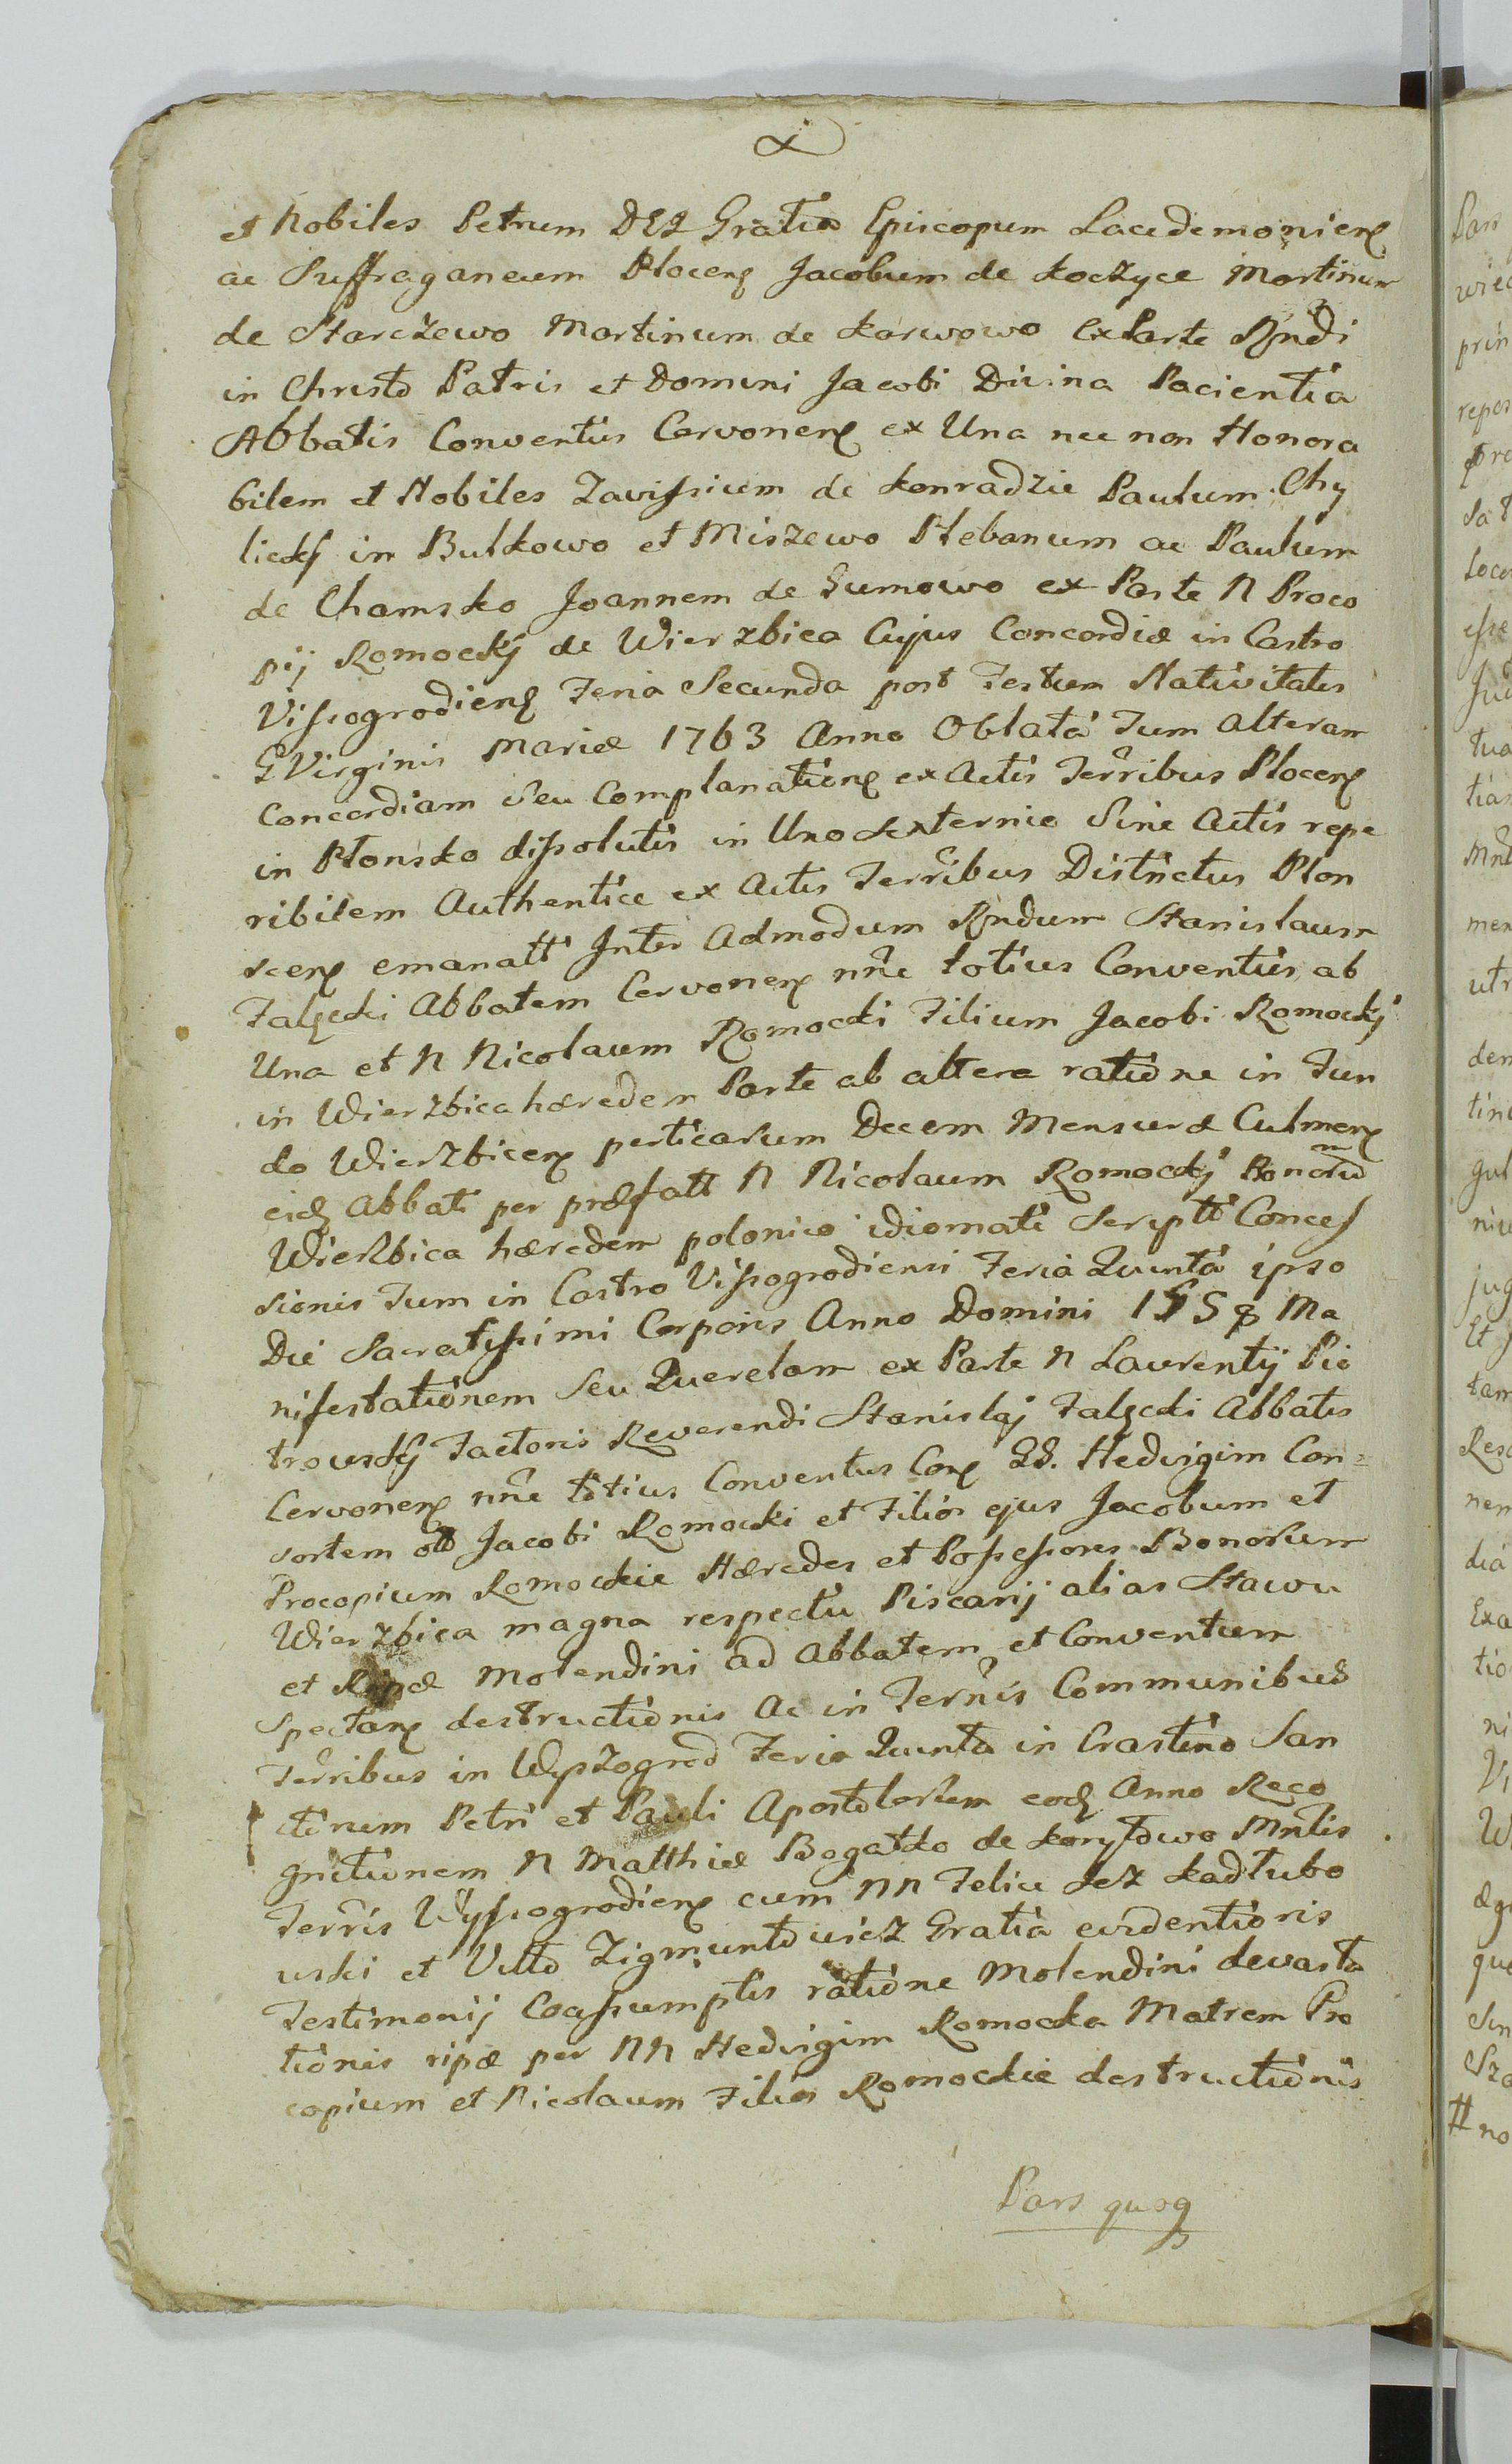 et Nobiles Petrum DEI Gratia Episcopum Lacedemoniens
ac Suffraganeum Plocens Jacobum de Koczyce Martinum
de Starczewo Martinum de Karwowo Ex Parte Rndi
in Christo Patris et Domini Jacobi Divina Pacientia
Abbatis Conventus Cervonens ex Una nec non Honora
bilem et Nobiles Zavissium de Konradzie Paulum Chy
licky in Bulkowo et Miszewo Plebanum ac Paulum
de Chamsko Joannem de Gumowo ex Parte N Proco
pij Romocky de Wierzbica Cujus Concordiæ in Castro
Vissogrodiens Feria Secunda post Festum Nativitatis
Virginis Mariæ 1763 Anno Oblata Tum alteram
Concordiam seu Complanations ex Actis Terribus Plocens
in Płonsko dissolutis in Uno Sexternio Sine Actis repe
ribilem Authentice ex Actis Terribus Districtus Plon
scens emanatt Inter Admodum Rndum Stanislaum
Falęcki Abbatem Cervonens nne totius Conventus ab
Una et N Nicolaum Romocki Filium Jacobi Romocky
in Wierzbica hæredem Parte ab altera ratione in Fun
do Wierzbicens perticarum Decem Mensuræ Culmens
eid Abbati per præfatt N Nicolaum Romocky Bonorum
Wierzbica hæredem polonico idiomate Scriptt Conces
sionis Tum in Castro Vissogrodiensi Feria Quinta ipso
Die Sacratissimi Corporis Anno Domini Ma
nifestationem seu Querelam ex Parte N Laurentij Pio
trowsky Factoris Reverendi Stanislaj Falęcki Abbatis
Cervonens nne totius Conventus Cons GG. Hedvigim Con=
sortem ott Jacobi Romocki et Filios ejus Jacobum et
Procopium Romockie Hæredes et Possessores Bonorum
Wierzbica magna respectu Piscarij alias Stawu
et Ripæ Molendini ad Abbatem et Conventum
Spectans destructionis Ac in Terris Communibus
Terribus in Wyszogrod Feria Quinta in Crastino San
ctorum Petri et Pauli Apostolorum eod Anno Reco
gnitionem N Matthiæ Bogatko de Korytowo Mntlis
Terris Wyssogrodiens cum NN Felice Lez Kadłubo
wski et Vitto Zigmuntowicz Gratia evidentioris
Testimonij Coassumptis ratione Molendini devasta
tionis ripæ per NN Hedvigim Romocka Matrem Pro
copium et Nicolaum Filios Romockie destructionis
Pars quoq